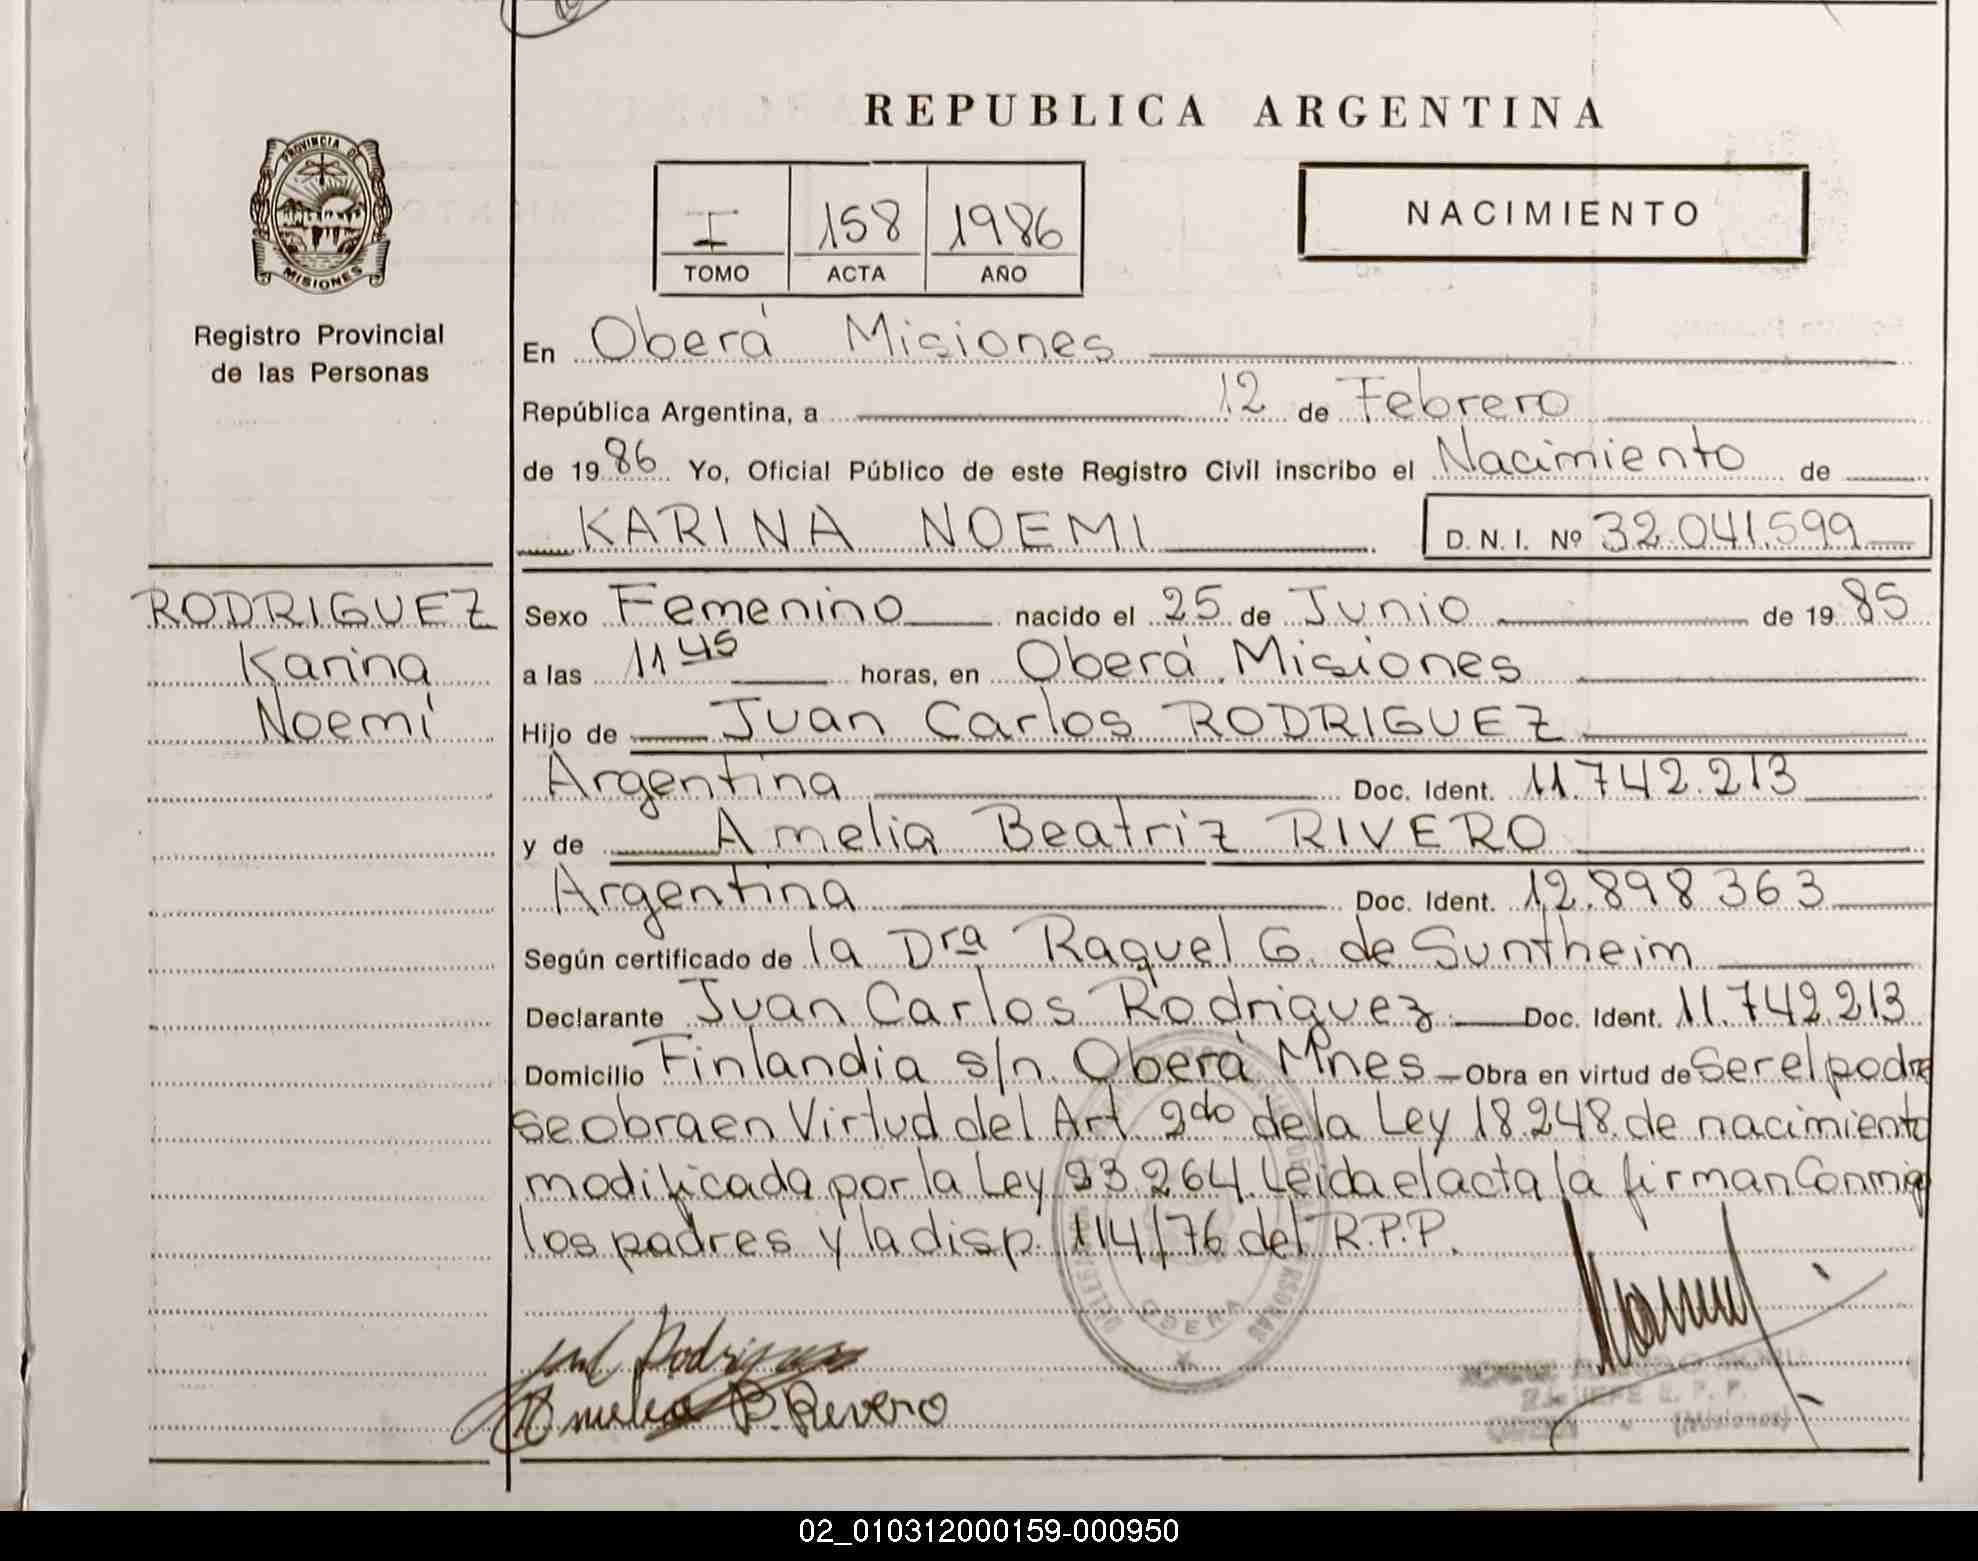 REPUBLICA ARGENTINA
PROVINCIA DE
MISIONES
Registro Provincial
de las Personas
I 158 1986
TOMO ACTA AÑO
NACIMIENTO
En Oberá Misiones
República Argentina, a 12 de Febrero
de 1986 Yo, Oficial Público de este Registro Civil inscribo el Nacimiento de
KARINA NOEMI D. N. I. Nº 32.041.599
RODRIGUEZ
Karina
Noemí
Sexo Femenino nacido el 25 de Junio de 1985
a las 11 45 horas, en Oberá Misiones
Hijo de Juan Carlos RODRIGUEZ
Argentina Doc. Ident. 11.742.213
y de Amelia Beatriz RIVERO
Argentina Doc. Ident. 12.898363
Según certificado de la Dra Raquel G. de Suntheim
Declarante Juan Carlos Rodriguez Doc. Ident. 11.742.213
Domicilio Finlandia s/n. Oberá Mnes Obra en virtud de Ser el padre
se obra en Virtud del Art 2do de la Ley 18.248. de nacimiento
modificada por la Ley 23264. Leida el acta la firman Conmigo
los padres y la disp. 114/76 del R.P.P.
OBERA
Rodriguez
Amelia B. Rivero
JEFE R. P. P.
(Misiones)
02_010312000159-000950